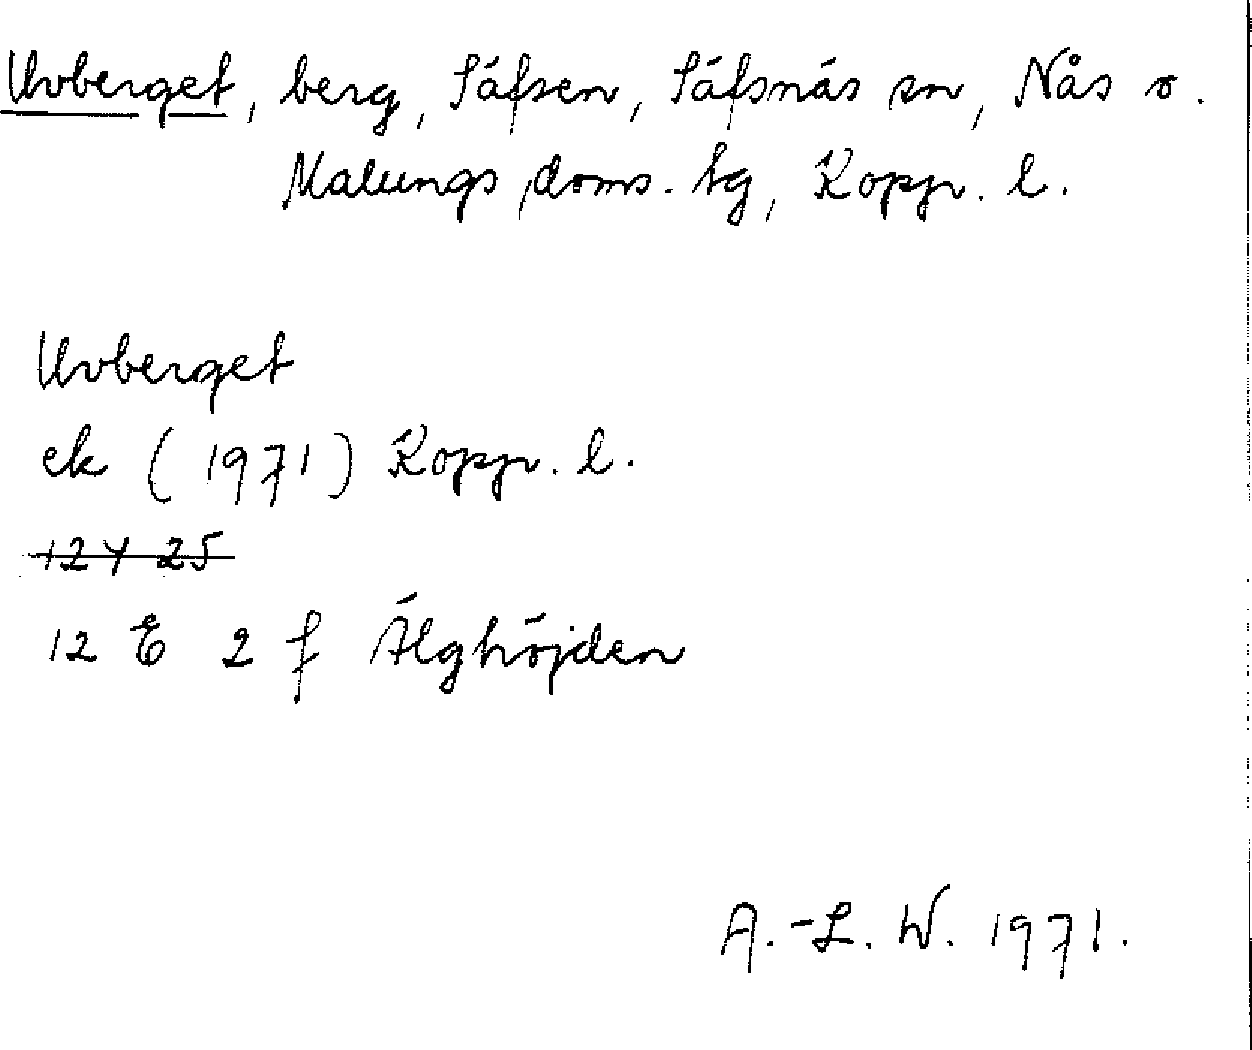 Uvberget, berg, Säfsen, Säfsnäs sn, Nås o.
Malungs doms. tg, Kopp. l.
Uvberget
ek (1971) Kopp. l.
12 Y 25
12 E 2 f Älghöjden
A.-L. W. 1971.